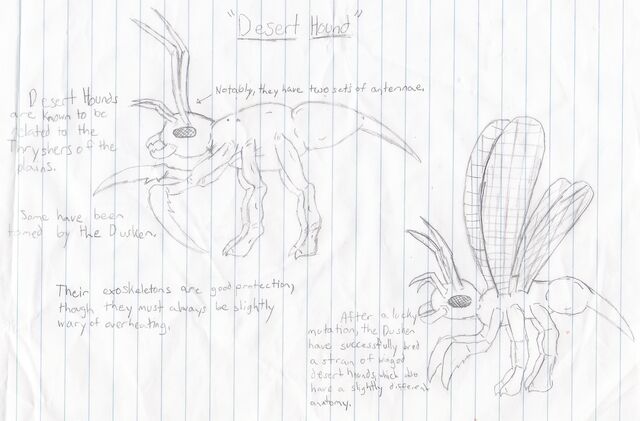 "Desert Hound"
Notably, they have two sets of antennae.
Desert Hounds
are known to be
related to the
Thryshers of the
plains.
Some have been
tamed by the Dusken.
Their exoskeletons are good protection,
though they must always be slightly
wary of overheating.
After a lucky
mutation, the Dusken
have successfully bred
a strain of winged
desert hounds, which also
have a slightly different
anatomy.